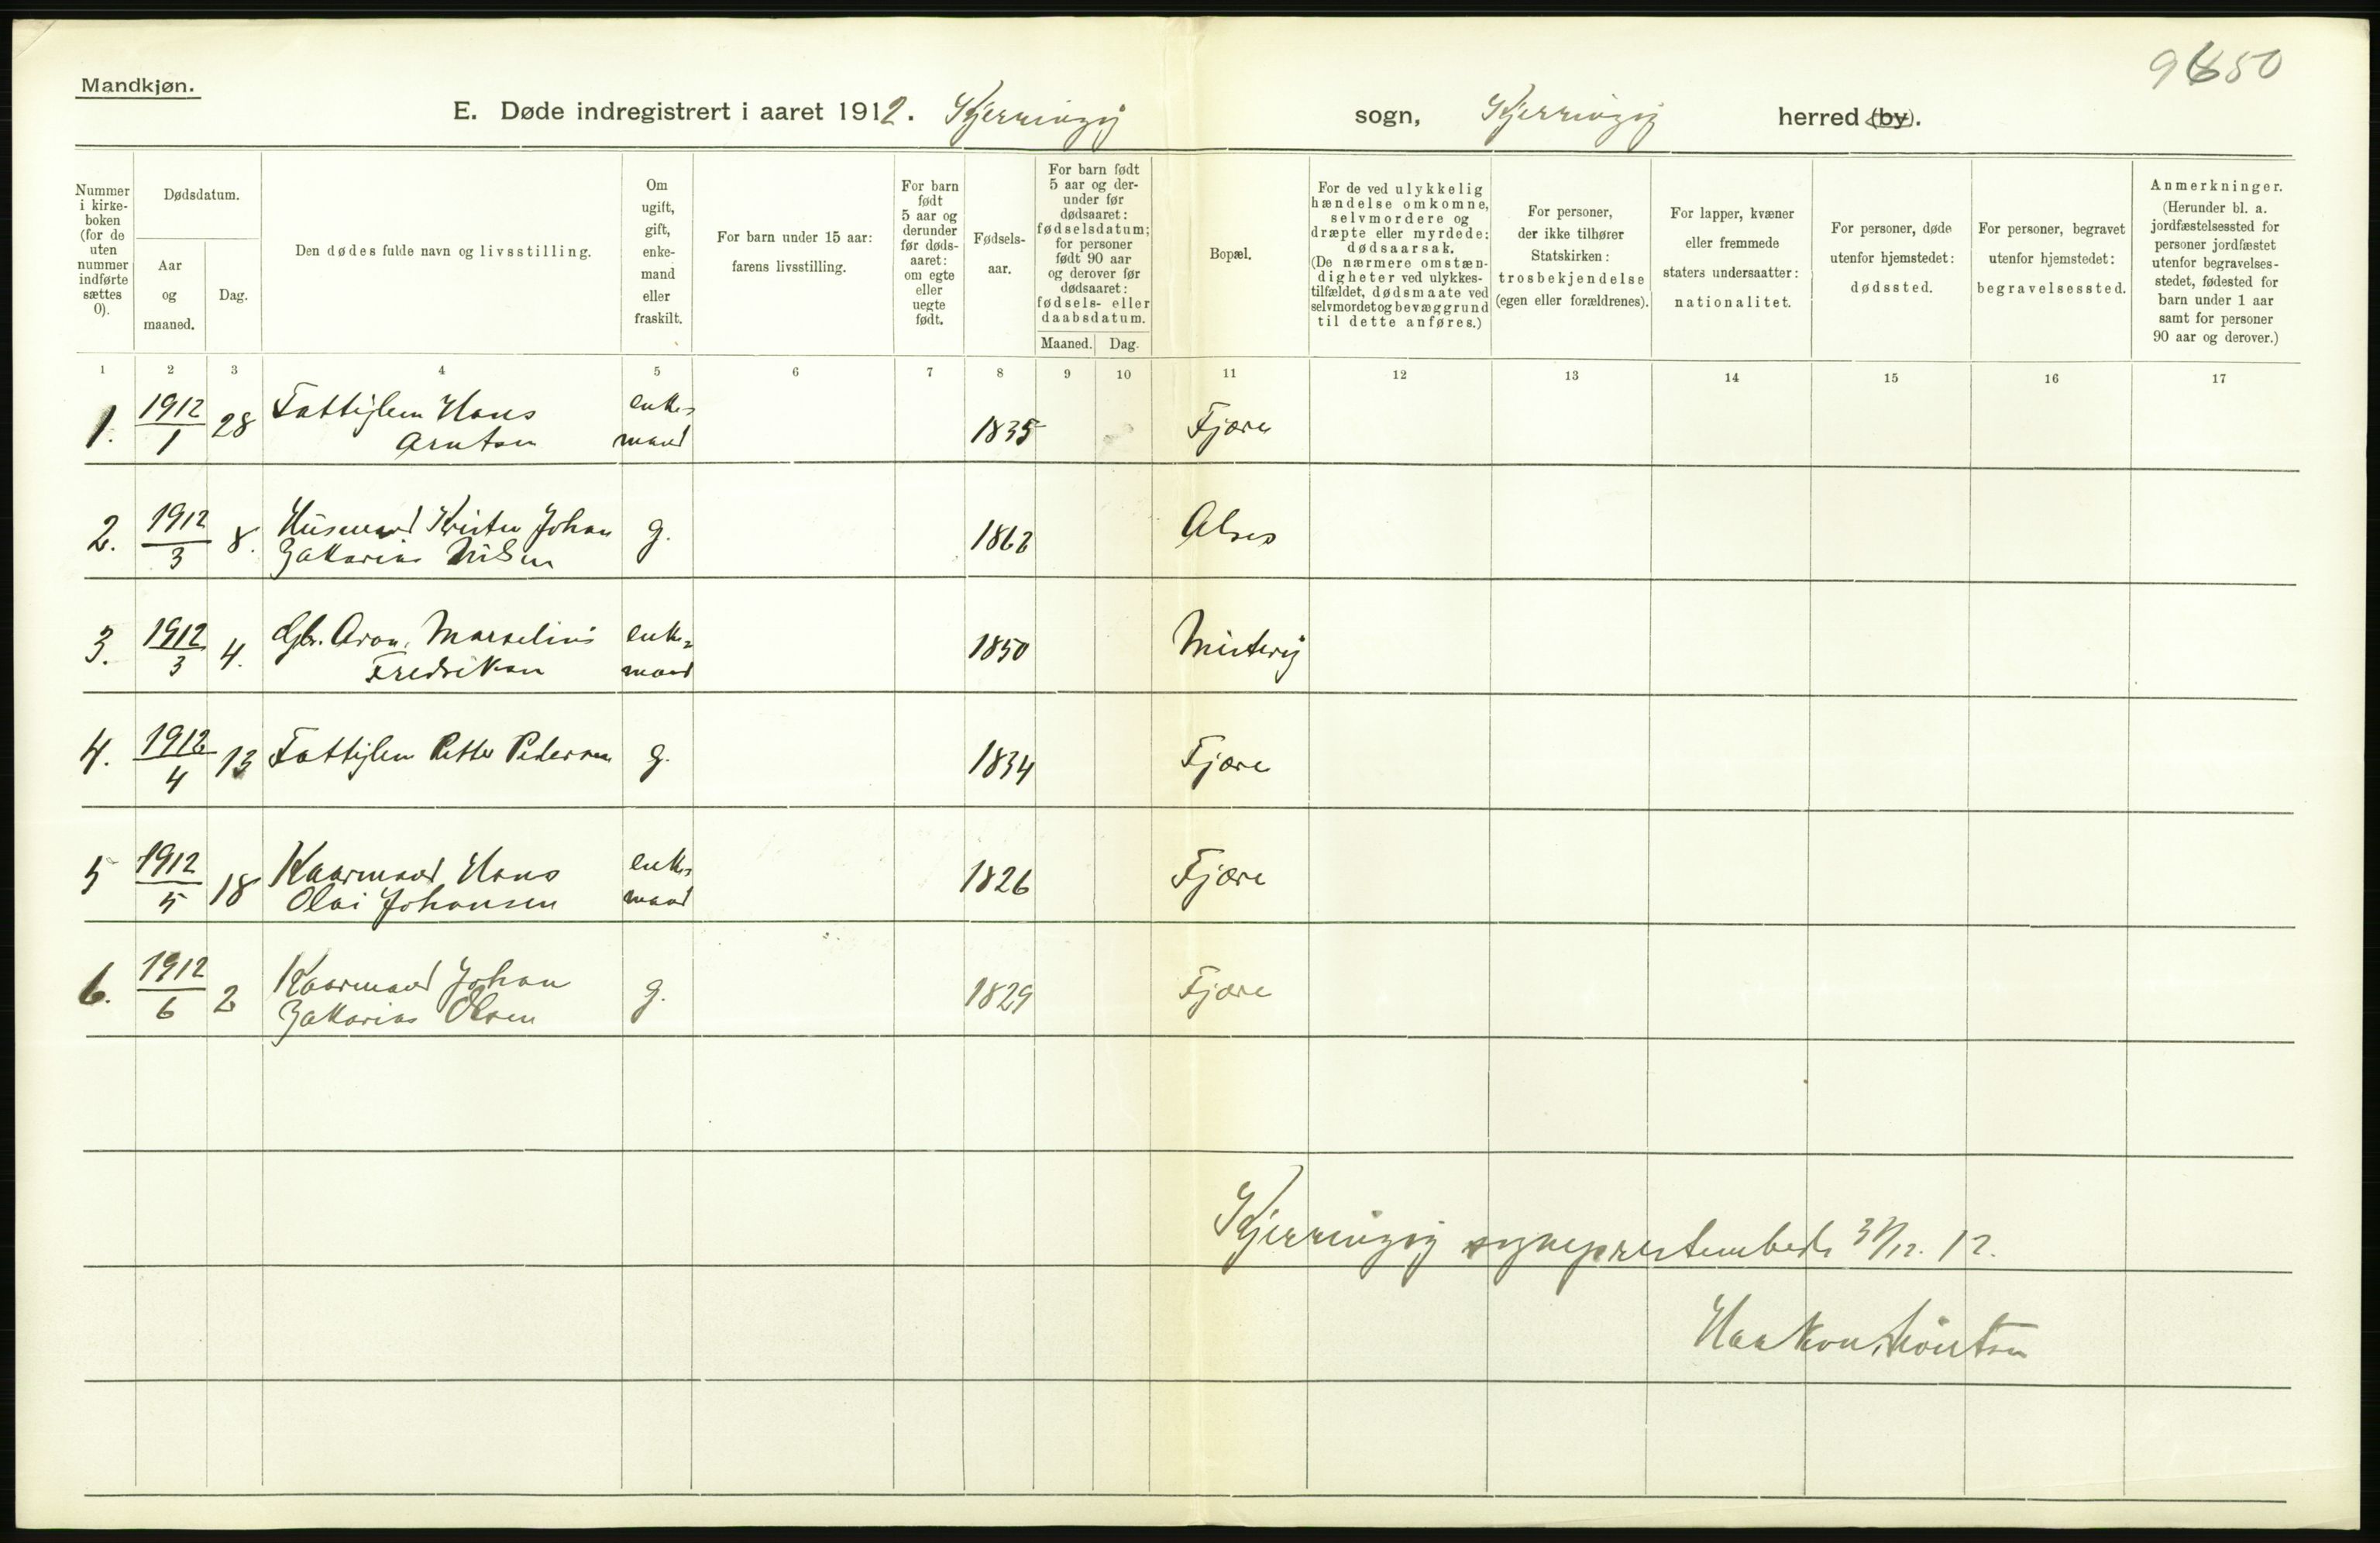 9650
Mandkjøn.
E. Døde indregistrert i aaret 1912. Kjerringøy sogn, Kjerringøy herred (by).
Nummer i kirke-boken (for de uten nummer indførte sættes 0).
Dødsdatum.
Aar og maaned.
Dag.
Den dødes fulde navn og livsstilling.
Om ugift, gift, enke-mand eller fraskilt.
For barn under 15 aar: farens livsstilling.
For barn født 5 aar og derunder før døds-aaret: om egte eller uegte født.
Fødsels-aar.
For barn født 5 aar og der-under før dødsaaret: fødselsdatum; for personer født 90 aar og derover før dødsaaret: fødsels- eller daabsdatum.
Maaned. Dag.
Bopæl.
For de ved ulykkelig hændelse omkomne, selvmordere og dræpte eller myrdede: dødsaarsak. (De nærmere omstæn-digheter ved ulykkes-tilfældet, dødsmaate ved selvmordet og bevæggrund til dette anføres.)
For personer, der ikke tilhører Statskirken: trosbekjendelse (egen eller forældrenes).
For lapper, kvæner eller fremmede staters undersaatter: nationalitet.
For personer, døde utenfor hjemstedet: dødssted.
For personer, begravet utenfor hjemstedet: begravelsessted.
Anmerkninger. (Herunder bl. a. jordfæstelsessted for personer jordfæstet utenfor begravelses-stedet, fødested for barn under 1 aar samt for personer 90 aar og derover.)
1 2 3 4 5 6 7 8 9 10 11 12 13 14 15 16 17
1. 1912/1 28 Fattiglem Hans Arntsen enke-mand 1835 Fjære
2. 1912/3 8. Husmand Krister Johan Zakarias Nilsen g. 1862 Alsos
3. 1912/3 4. Gbr. Aron Marselius Fredriksen enke-mand 1850 Misterøy
4. 1912/4 13 Fattiglem Petter Pedersen g. 1834 Fjære
5 1912/5 18 Kaarmand Hans Olai Johansen enke-mand 1826 Fjære
6. 1912/6 2 Kaarmand Johan Zakarias Olsen g. 1829 Fjære
Kjerringøy sogneprestembede 31/12. 12.
Haakon